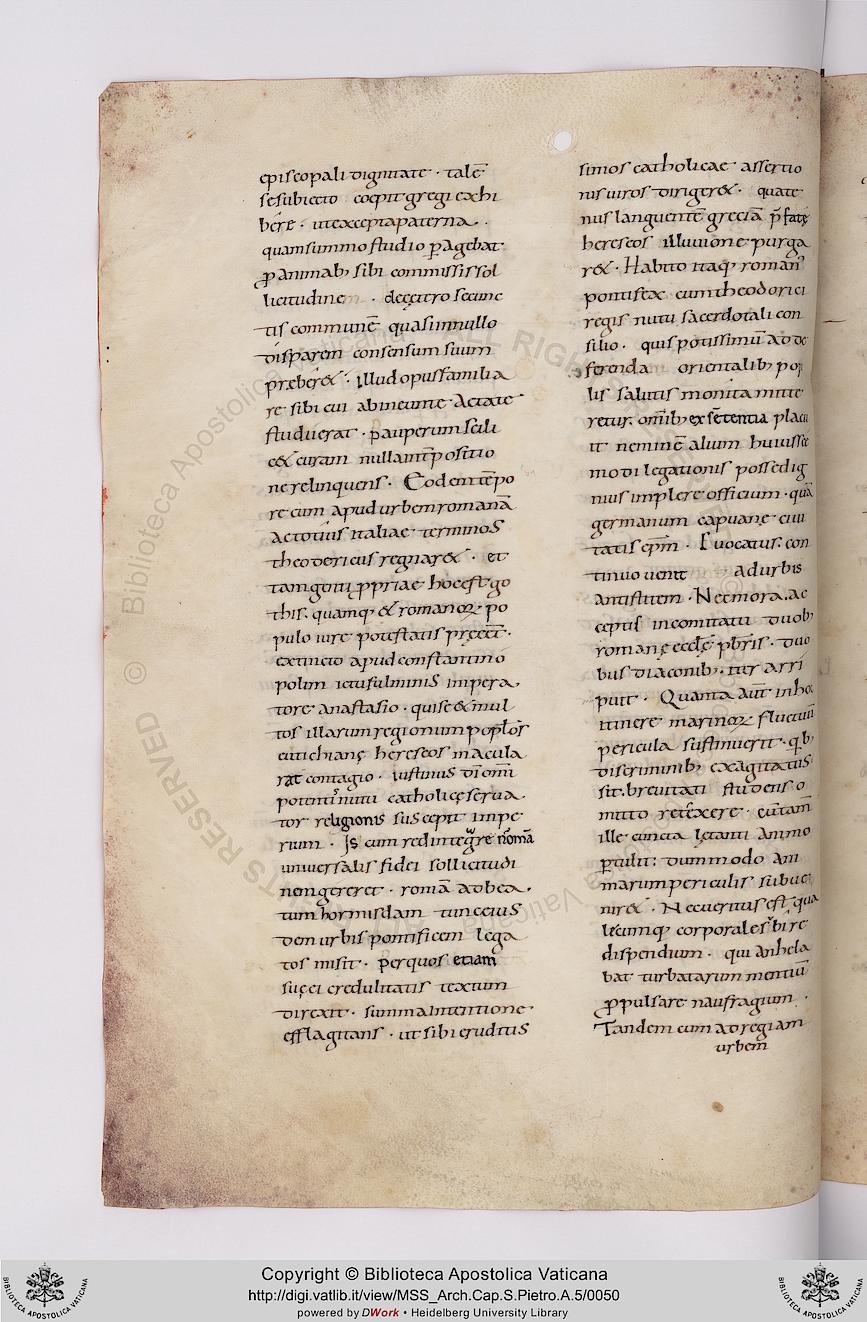 episcopali dignitate · talē
se subiecto coepit gregi exhi
bere · ut excepta paterna ·
quam summo studio ꝑagebat
ꝓ animab; sibi commissis sol
licitudine · de cetero secunc
tis communē quasi in nullo
disparem consensum suum
preber& · illud opus familia
re sibi cui ab ineunte aetate
studuerat · pauperum scili
c& curam nulla intpositio
ne relinquens · Eodem tēpo
re cum apud urbem romanā
ac totius italiae terminos
theodericus regnar& · et
tam genti ꝓpriae hoc est go
this · quamq; & romanoꝝ po
pulo iure potestatis preēēt ·
extincto apud constantino
polim ictu fulminis impera
tore anastasio · qui se & mul
tos illarum regionum poplōs
eutichianę hereseos macula
rat contagio · iustinus dī omi
potentis nutu catholicę serua
tor religionis suscepit impe
rium · Is cum redintegre nōma
uniuersalis fidei sollicitudi
nem gereret · romā ad bea
tum hormisdam tunc eius
dem urbis pontificem lega
tos misit · per quos etiam
suęei credulitatis textum
direxit · summa intentione
efflagitans · ut sibi eruditis
simos catholicae assertio
nis uiros diriger& · quate
nus languentē greciā p̄fatę
hereseos illuuione purga
r& · Habito itaq; roman'
pontifex cum theodorici
regis nutu sacerdotali con
silio · quis potissimū ad de
ferenda orientalib; po
lis salutis monita mitte
retur · omib; ex sētentia placu
it neminē alium huiusce
modi legationis posse dig
nius implere officium · quā
germanum capuanę ciui
tatis epm · Euocatus con
tinuo uenit ad urbis
antistitem · Nec mora · ac
ceptis in comitatu duob;
romanę eccłę p̄bris · duo
bus diaconib; · iter arri
puit · Quanta aūt in hoc
itinere marinoꝝ fluctuū
pericula sustinuerit · qb;
discriminib; exagitatus
sit · breuitati studens o
mitto retexere · cū tam̄
ille cuncta lętanti animo
ꝑtulit : dummodo ani
marum periculis subue
nir& · Nec ueritus est qua
lecumq; corporale sbire
dispendium · qui anhela
bat turbatarum mentiū
ꝓpulsare naufragium ·
Tandem cum ad regiam
urbem
Copyright © Biblioteca Apostolica Vaticana
http://digi.vatlib.it/view/MSS_Arch.Cap.S.Pietro.A.5/0050
powered by DWork • Heidelberg University Library